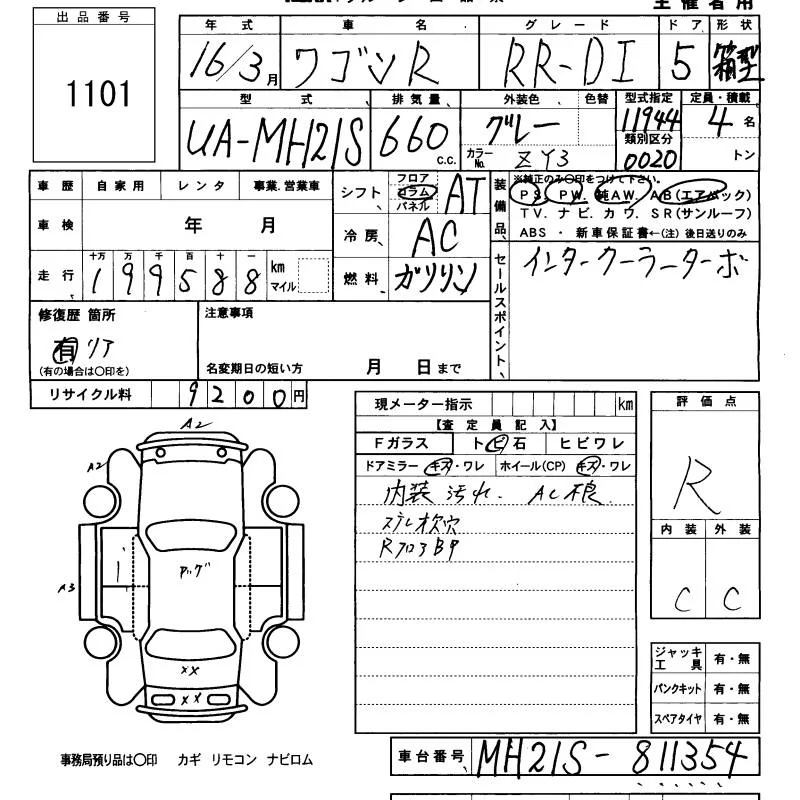 主催者用
出品番号
1101
年式 車名 グレード ドア 形状
16/3月 ワゴンR RR-DI 5 箱型
型式 排気量 外装色 色替 型式指定 定員・積載
UA-MH21S 660 c.c. グレー 11944 4名
カラーNo. ZY3 類別区分 0020 トン
車歴 自家用 レンタ 事業.営業車
シフト フロア コラム パネル AT
装備品 ※純正のみ〇印をつけて下さい。
PS. PW. 純AW. AB(エアバック)
TV. ナビ. カワ. SR(サンルーフ)
ABS ・ 新車保証書←(注) 後日送りのみ
車検 年 月
冷房 AC
走行 十万 万 千 百 十 一
199588 km マイル
燃料 ガソリン
セールスポイント
インタークーラーターボ
修復歴 箇所
有 リア
(有の場合は〇印を)
注意事項
名変期日の短い方 月 日まで
リサイクル料 9200円
現メーター指示 km
【査定員記入】
Fガラス トビ石 ヒビワレ
ドアミラー キズ・ワレ ホイール(CP) キズ・ワレ
内装 汚れ. AC
評価点
R
内装 外装
C C
A2
A2
A3
XX
XX
ジャッキ工具 有・無
パンクキット 有・無
スペアタイヤ 有・無
事務局預り品は〇印 カギ リモコン ナビロム
車台番号 MH21S-811354